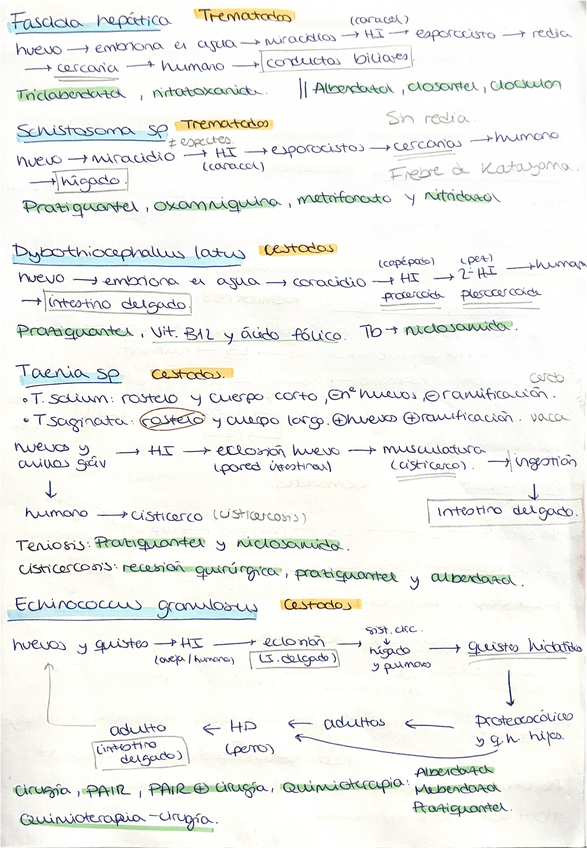 Fasciola hepática Trematodos
(caracol)
huevo → embriona el agua → miracidios → HI → esporocisto → redia
→ cercaria → humano → conductos biliares.
Triclabendazol, nitatoxanida. || Albendazol, closantel, clorsulon
Sin redia.
Schistosoma sp Trematodos
≠ especies
huevo → miracidio → HI → esporocistos → cercarias → humano
(caracol)
→ hígado. Fiebre de Katayama.
Praziquantel, oxamniquina, metrifonato y nitridazol
Dybothiocephallus latus cestodos
(copépodo) (pez)
huevo → embriona el agua → coracidio → HI → 2º HI → humano
→ intestino delgado. procercoide plerocercoide
Praziquantel, Vit. B12 y ácido fólico. Tb → niclosamida.
Taenia sp cestodos.
cerdo
• T. solium: rostelo y cuerpo corto, ⊖nº huevos, ⊖ramificación.
• T saginata: rostelo y cuerpo largo. ⊕huevos ⊕ramificación. vaca
huevos y → HI → eclosión huevo → musculatura → ingestión
anillos gráv (pared intestinal) (cisticerco).
↓ ↓
humano → cisticerco (cisticercosis) intestino delgado.
Teniosis: Praziquantel y niclosamida.
Cisticercosis: recesión quirúrgica, praziquantel y albendazol.
Echinococcus granulosus cestodos
sist. circ.
huevos y quistes → HI → eclosión → hígado → quistes hidatídicos
(oveja/humano) (I. delgado) y pulmono
↓
adulto ← HD ← adultos ← protoescólices
(intestino delgado) (perro) y q.h. hijos.
Cirugía, PAIR, PAIR ⊕ cirugía, Quimioterapia: Albendazol
Mebendazol
Praziquantel.
Quimioterapia - cirugía.